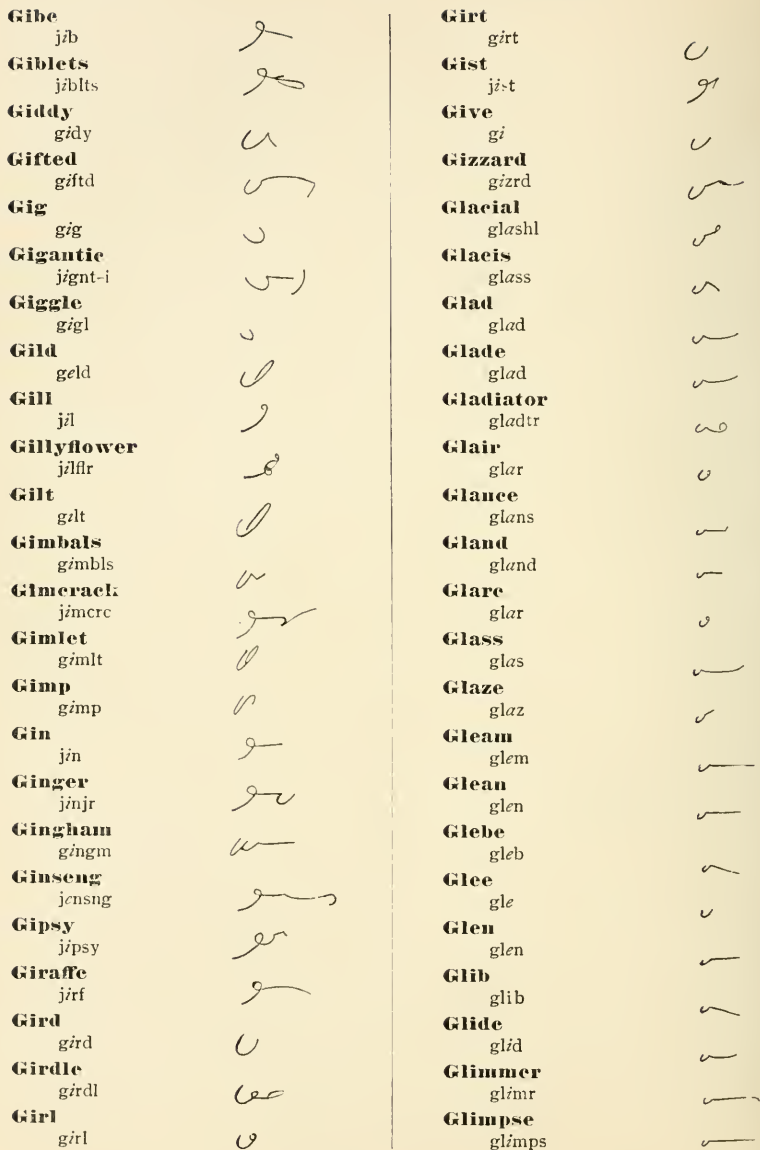 Gibe
jib
Giblets
jiblts
Giddy
gidy
Gifted
giftd
Gig
gig
Gigantic
jignt-i
Giggle
gigl
Gild
geld
Gill
jil
Gillyflower
jilflr
Gilt
gilt
Gimbals
gimbls
Gimcrack
jimcrc
Gimlet
gimlt
Gimp
gimp
Gin
jin
Ginger
jinjr
Gingham
gingm
Ginseng
jensng
Gipsy
jipsy
Giraffe
jirf
Gird
gird
Girdle
girdl
Girl
girl
Girt
girt
Gist
jist
Give
gi
Gizzard
gizrd
Glacial
glashl
Glacis
glass
Glad
glad
Glade
glad
Gladiator
gladtr
Glair
glar
Glance
glans
Gland
gland
Glare
glar
Glass
glas
Glaze
glaz
Gleam
glem
Glean
glen
Glebe
gleb
Glee
gle
Glen
glen
Glib
glib
Glide
glid
Glimmer
glimr
Glimpse
glimps